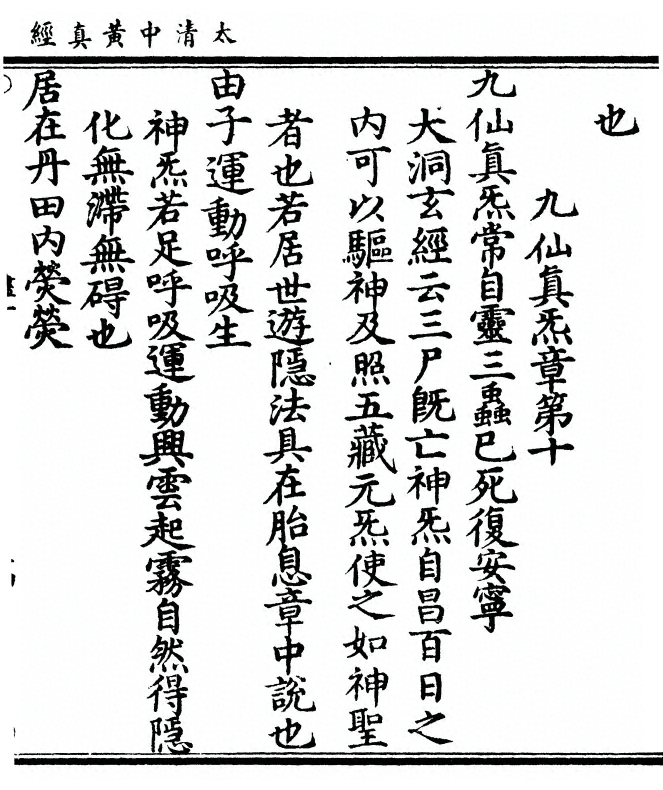 太清中黃真經
也
九仙真炁章第十
九仙真炁常自靈三蟲已死復安寧
大洞玄經云三尸旣亡神炁自昌百日之
內可以驅神及照五藏元炁使之如神聖
者也若居世遊隱法具在胎息章中說也
由子運動呼吸生
神炁若足呼吸運動興雲起霧自然得隱
化無滯無碍也
居在丹田內熒熒